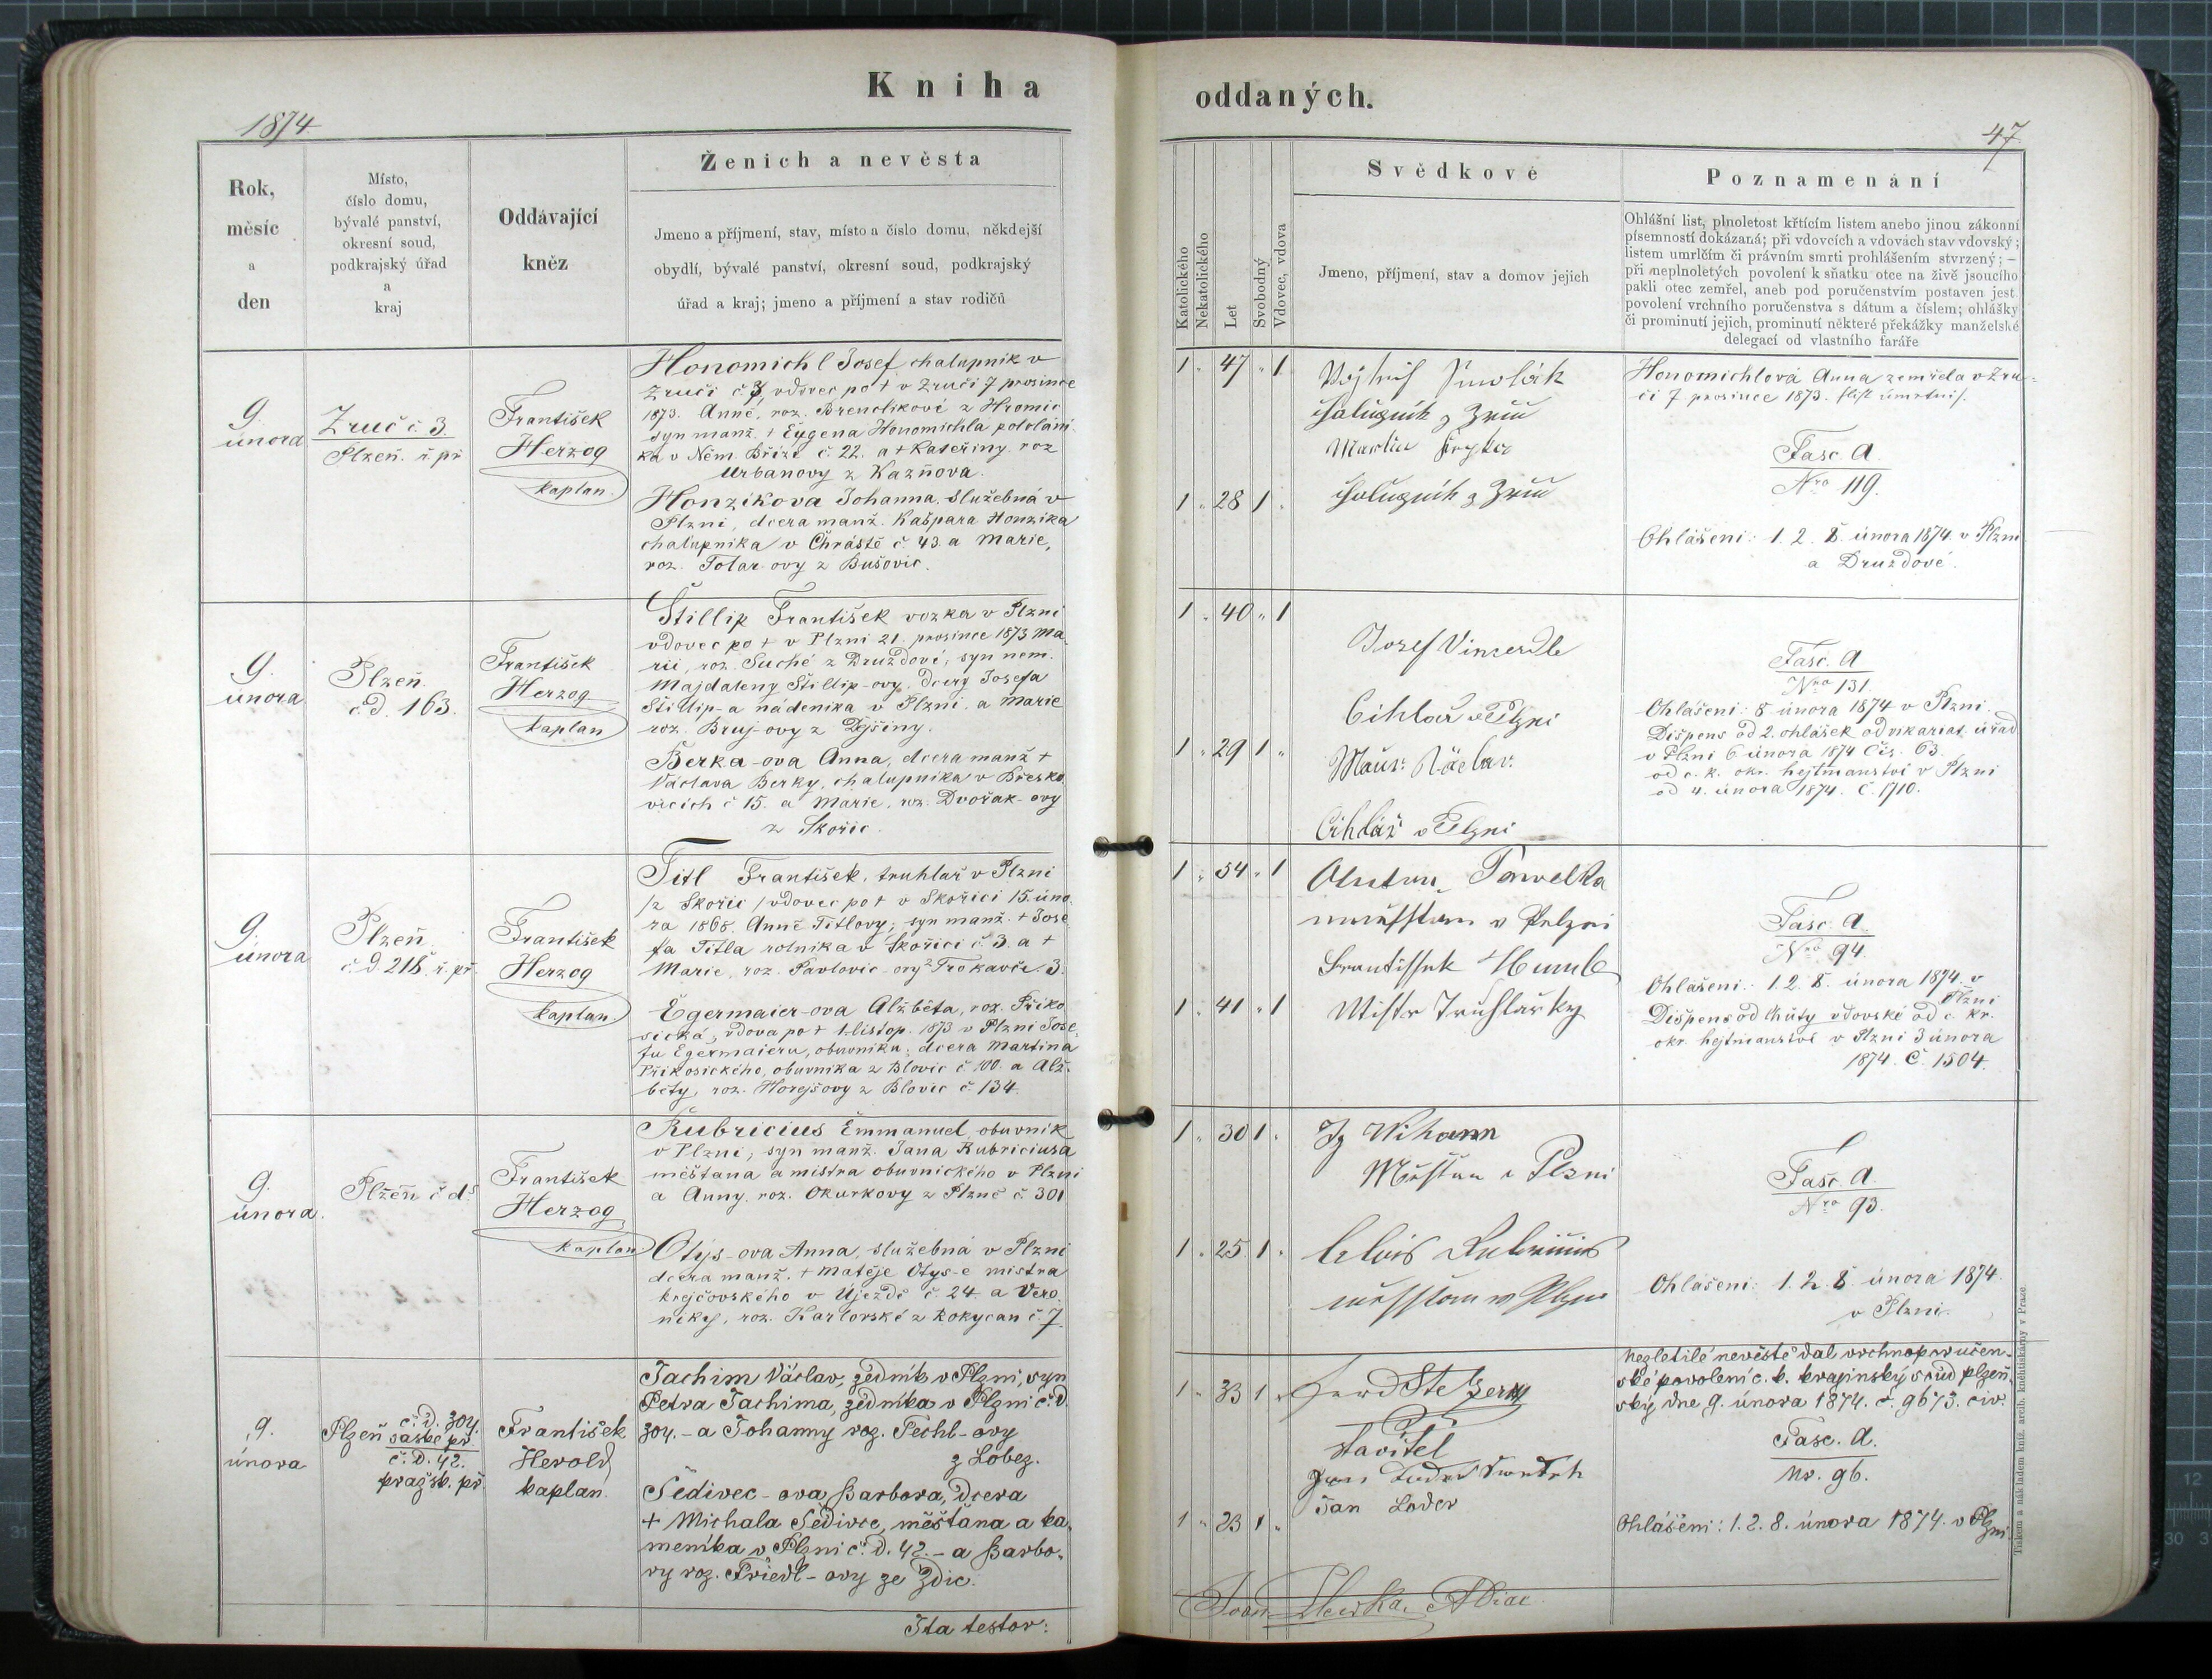 Kniha
1874
Rok,
měsíc
a
den
Místo,
číslo domu,
bývalé panství,
okresní soud,
podkrajský úřad
a
kraj
Oddávající
kněz
Ženich a nevěsta
Jmeno a příjmení, stav, místo a číslo domu, někdejší
obydlí, bývalé panství, okresní soud, podkrajský
úřad a kraj; jmeno a příjmení a stav rodičů
9.
února
Zruč č. 3.
Plzeň. ř. př
František
Herzog
kaplan.
Honomichl Josef chalupník v
Zruči č. 3, vdovec po + v Zruči 7 prosince
1873. Anně, roz. Brenclikové z Hromic
syn manž. + Eygena Honomichla pololání-
ka v Něm. Bříze č. 22. a + Kateřiny roz
Urbanovy z Kazňova.
Honzíkova Johanna, služebná v
Plzni, dcera manž. Kašpara Honzíka
chalupníka v Chrástě č. 43. a Marie,
roz. Tolar-ovy z Bušovic.
9.
února
Plzeň.
č. d. 163.
František
Herzog
kaplan
Štillip František vozka v Plzni
vdovec po + v Plzni 21. prosince 1873 Ma-
rii, roz. Suché z Druzdové; syn nem.
Majdaleny Štillip-ovy, dcery Josefa
Stillip-a nádeníka v Plzni, a Marie
roz. Bruj-ovy z Dýšiny.
Berka-ova Anna, dcera manž +
Václava Berky, chalupníka v Břesko-
vicích č 15. a Marie, roz. Dvořak-ovy
z Skořic.
9.
února
Plzeň
č. d. 218. ř. př.
František
Herzog
kaplan
Titl František, truhlař v Plzni
/z Skořic/ vdovec po + v Skořici 15. úno-
ra 1868. Anně Titlovy; syn manž. + Jose-
fa Titla rolníka v Skořici č. 3. a +
Marie, roz. Pavlovic-ovy z Trokavče. 3.
Egermaier-ova Alžběta, roz. Přiko-
sická, vdova po + 1. listop. 1873 v Plzni Jose-
fu Egermaieru, obuvníku; dcera Martina
Přikosického, obuvníka z Blovic č 100. a Alž-
běty, roz. Horejšovy z Blovic č. 134.
9.
února.
Plzeň č d.
František
Herzog
kaplan
Kubricius Emmanuel, obuvník
v Plzni, syn manž. Jana Kubriciusa
měštana a mistra obuvnického v Plzni
a Anny, roz. Okurkovy z Plzně č. 301
Otys-ova Anna, služebná v Plzni
dcera manž. + Matěje Otys-e mistra
krejčovského v Újezdě č 24. a Vero-
niky, roz. Karlovské z Rokycan č. 7.
9.
února
Plzeň č. d. 304.
saské př.
č. d. 42.
pražsk. př.
František
Herold
kaplan.
Jachim Václav, zedník v Plzni, syn
Petra Jachima, zedníka v Plzni č. d.
304. - a Johanny roz. Fechtl-ovy
z Lobez.
Šedivec-ova Barbora, dcera
+ Michala Šedivce, měšťana a ka-
meníka v Plzni č. d. 42. - a Barbo-
ry roz. Friedl-ovy ze Zdic.
Ita testor:
oddaných.
47
Katolického
Nekatolického
Let
Svobodný
Vdovec, vdova
Svědkové
Jmeno, příjmení, stav a domov jejich
Poznamenání
Ohlášní list, plnoletost křtícím listem anebo jinou zákonní
písemností dokázaná; při vdovcích a vdovách stav vdovský;
listem umrlčím či právním smrti prohlášením stvrzený; —
při neplnoletých povolení k sňatku otce na živě jsoucího
pakli otec zemřel, aneb pod poručenstvím postaven jest
povolení vrchního poručenstva s dátum a číslem; ohlášky
či prominutí jejich, prominutí některé překážky manželské
delegací od vlastního faráře
1 " 47 " 1
chalupník z Zruč
Martin
1 " 28 1 "
chalupník z Zruč
Honomichlová Anna zemřela v Zru-
či 7 prosince 1873.
Fasc. A.
Nro 119.
Ohlášení: 1. 2. 8. února 1874. v Plzni
a Druzdové.
1 " 40 " 1
Josef
Cihlař v Plzni
1 " 29 1 "
Václav
Cihlář v Plzni
Fasc. A
Nro 131.
Ohlášení: 8 února 1874 v Plzni.
Dispens od 2. ohlášek od vikariat. úřad
v Plzni 6 února 1874 Čís. 63.
od c. k. okr. hejtmanství v Plzni
od 4. února 1874. č. 1710.
1 " 54 " 1
Pawelka
František
1 " 41 " 1
Mistr Truhlářsky
Fasc. A.
Nro 94.
Ohlášení: 1. 2. 8. února 1874. v
Plzni
Dispens od lhůty vdovské od c. kr.
okr. hejtmanství v Plzni 3 února
1874. Č. 1504.
1 " 30 1 "
Wihann
Měštan v Plzni
1 " 25 1 "
Alois Kubricius
Fasc. A.
Nro 93.
Ohlášení: 1. 2. 8. února 1874.
v Plzni.
1 " 33 1 "
Stelzer
stavitel
Jan Loder
1 " 23 1 "
Nezletilé nevěstě dal vrchnoporučen-
ské povolení c. k. krajinský soud plzeň-
ský dne 9. února 1874. č. 9673. civ.
Fasc. A.
Nr. 96.
Ohlášení: 1. 2. 8. února 1874. v Plzni
Tiskem a nákladem kníž. arcib. knihtiskárny v Praze